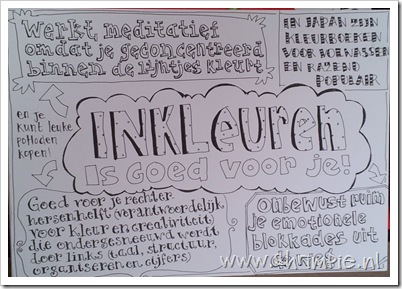 Werkt meditatief
omdat je geconcentreerd
binnen de lijntjes kleurt
EN JAPAN ZIJN
KLEURBOEKEN
VOOR VOLWASSEN
EN RAZEND
POPULAIR
en je
kunt leuke
potloden
kopen!
INKLeuren
Is Goed voor je!
Goed voor je rechter
hersenhelft (verantwoordelijk
voor kleur en creativiteit)
die ondergesneeuwd wordt
door links (taal, structuur,
organiseren en cijfers)
Onbewust ruim
je emotionele
blokkades uit